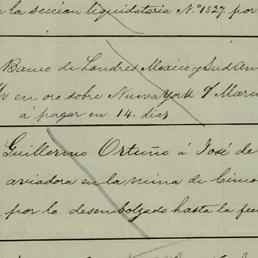 la sección liquidataria N.º 1527. por
Banco de Londres Mexico y Sud Am
en oro sobre Nueva York 7 Marz
á pagar en 14. dias
Guillermo Ortuño á José de
aviadora en la mina de Cinco
por lo desembolzado hasta la fec